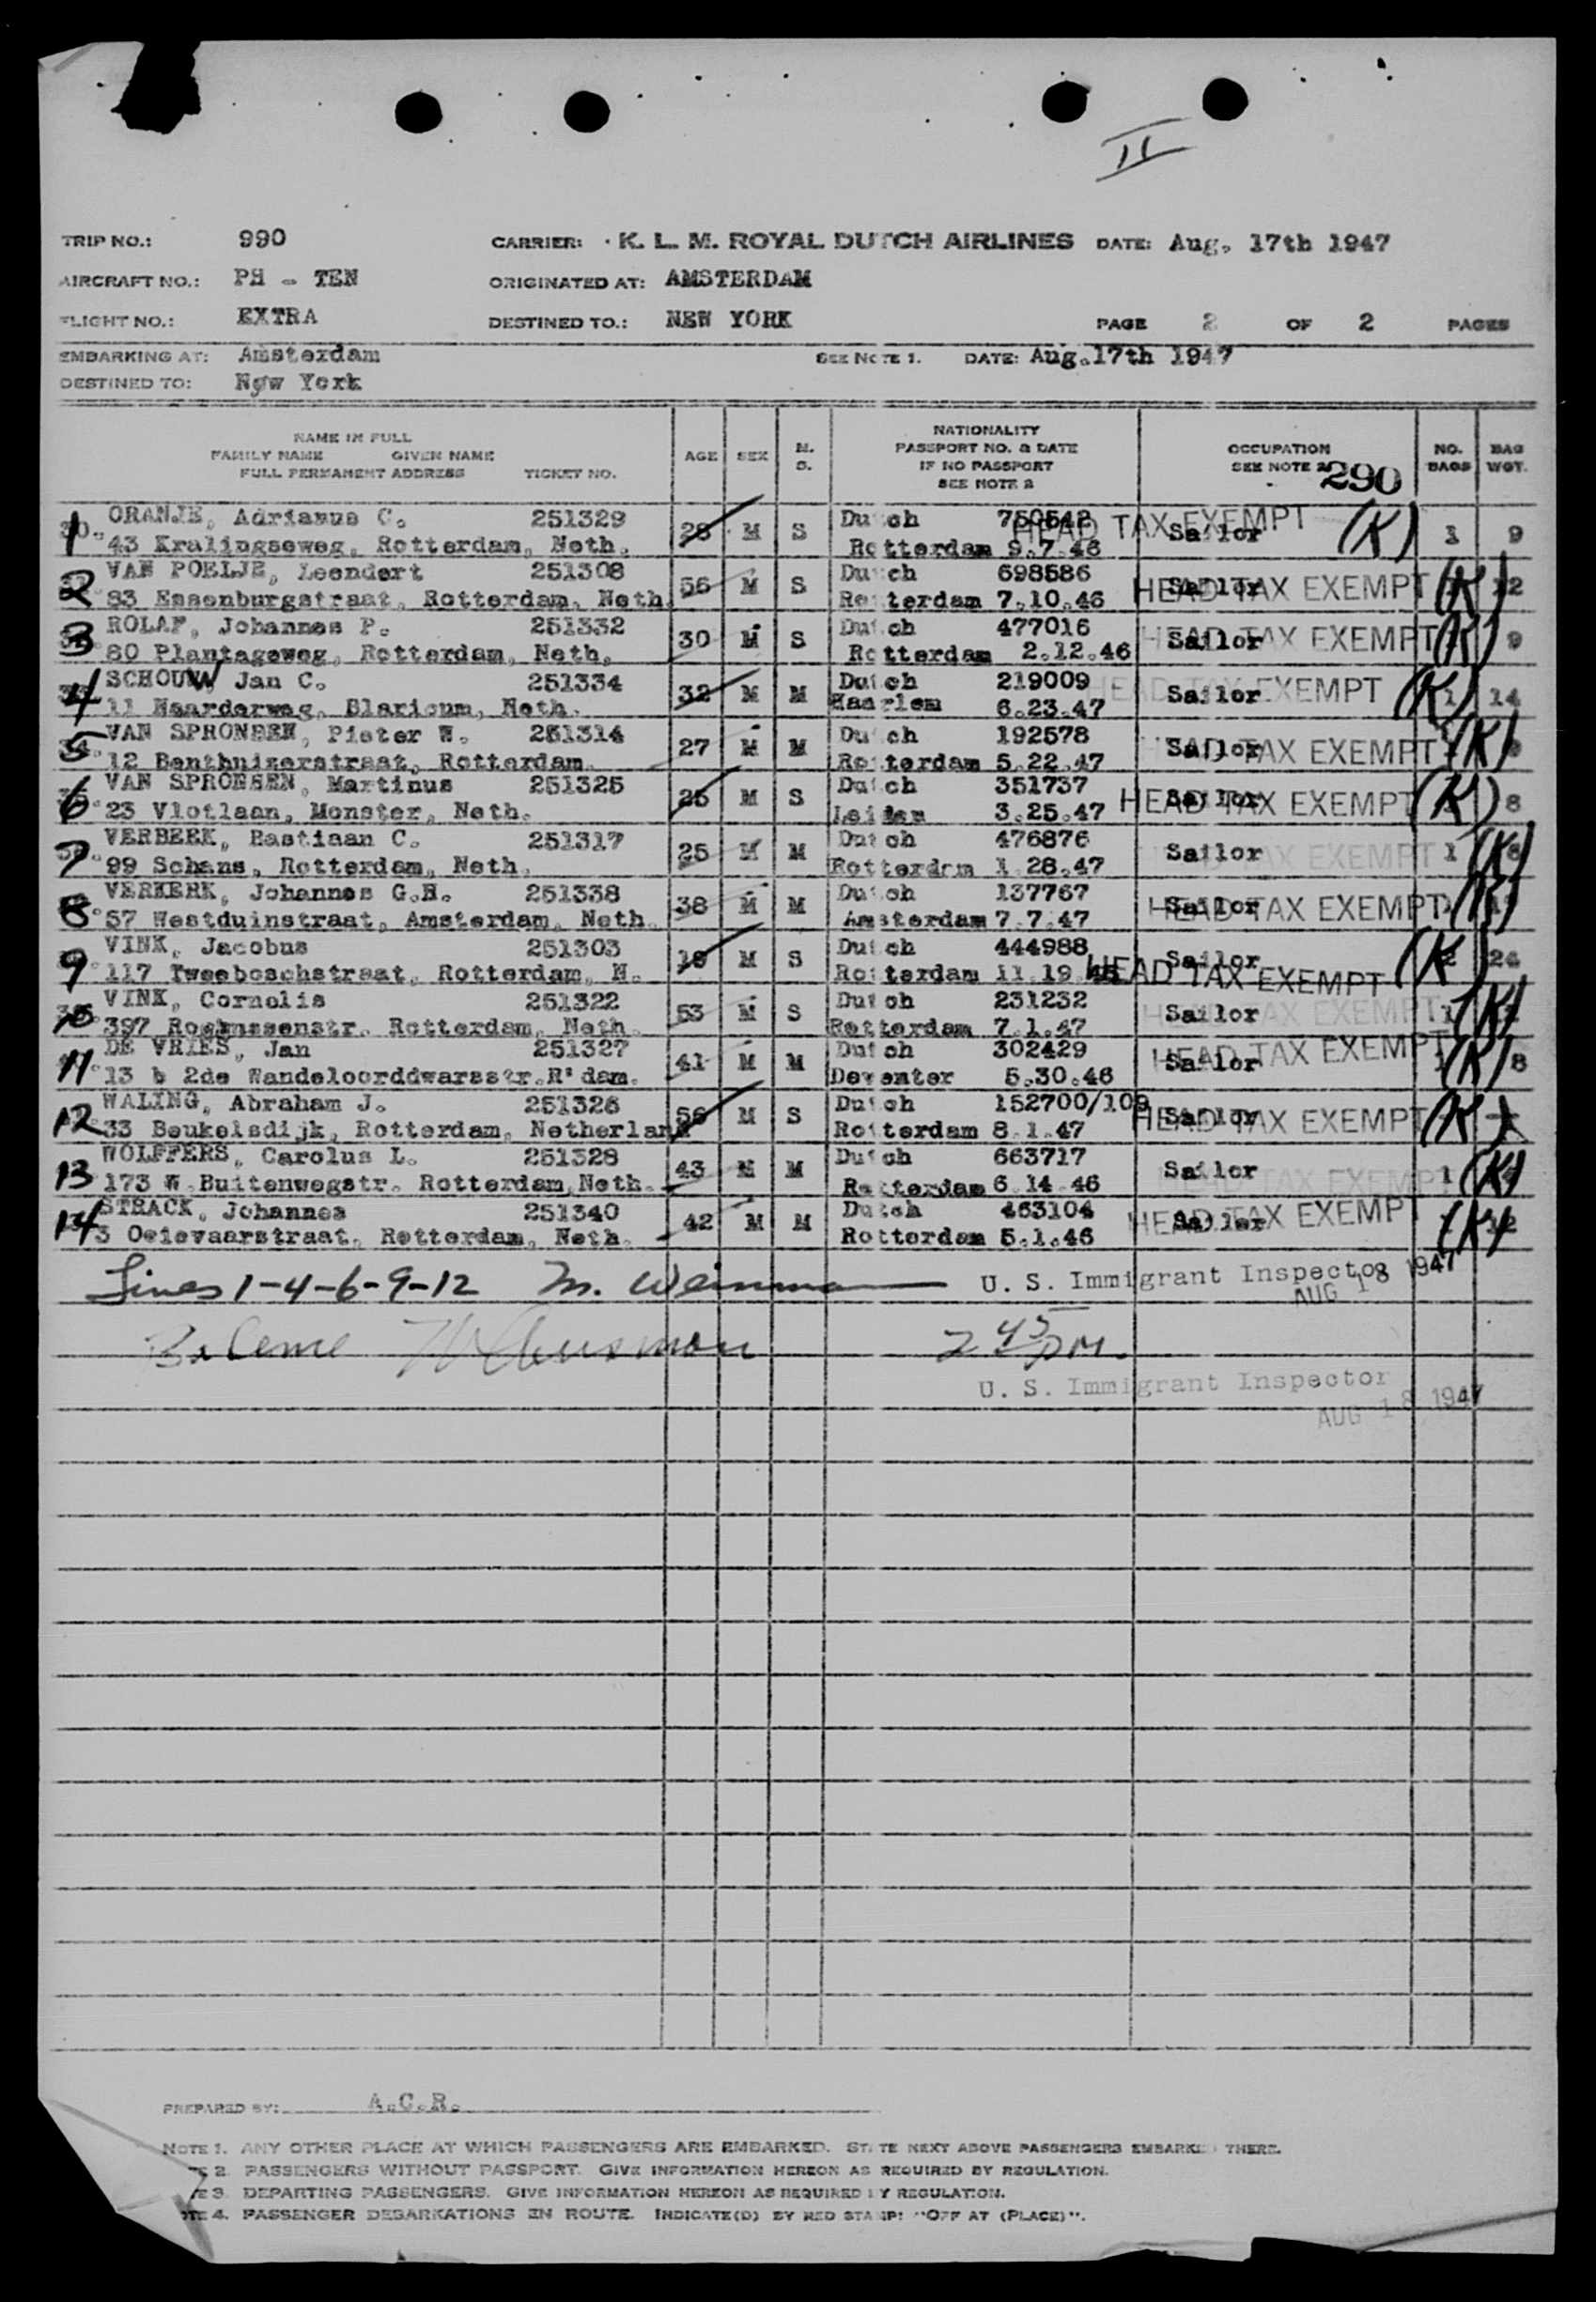 II
TRIP NO.: 990 CARRIER: K. L. M. ROYAL DUTCH AIRLINES DATE: Aug. 17th 1947
AIRCRAFT NO.: PH - TEN ORIGINATED AT: AMSTERDAM
FLIGHT NO.: EXTRA DESTINED TO.: NEW YORK PAGE 2 OF 2 PAGES
EMBARKING AT: Amsterdam SEE NOTE 1. DATE: Aug.17th 1947
DESTINED TO: New York
NAME IN FULL
FAMILY NAME GIVEN NAME
FULL PERMANENT ADDRESS TICKET NO. AGE SEX M. S. NATIONALITY PASSPORT NO. & DATE IF NO PASSPORT SEE NOTE 2 OCCUPATION SEE NOTE 2 NO. BAGS BAG WGT.
290
1 ORANJE, Adrianus C. 251329 28 M S Dutch 750542 HEAD TAX EXEMPT Sailor (K) 1 9
43 Kralingseweg, Rotterdam, Neth. Rotterdam 9.7.46
2 VAN POELJE, Leendert 251308 56 M S Dutch 698586 HEAD TAX EXEMPT Sailor (K) 12
83 Essenburgstraat, Rotterdam, Neth. Rotterdam 7.10.46
3 ROLAF, Johannes P. 251332 30 M S Dutch 477016 HEAD TAX EXEMPT Sailor (K) 9
80 Plantageweg, Rotterdam, Neth. Rotterdam 2.12.46
4 SCHOUW, Jan C. 251334 32 M M Dutch 219009 HEAD TAX EXEMPT Sailor (K) 1 14
11 Naarderweg, Blaricum, Neth. Haarlem 6.23.47
5 VAN SPRONSEN, Pieter W. 251314 27 M M Dutch 192578 HEAD TAX EXEMPT Sailor (K)
12 Benthuizerstraat, Rotterdam. Rotterdam 5.22.47
6 VAN SPRONSEN, Martinus 251325 25 M S Dutch 351737 HEAD TAX EXEMPT Sailor (K) 8
23 Vlotlaan, Monster, Neth. Leiden 3.25.47
7 VERBEEK, Bastiaan C. 251317 25 M M Dutch 476876 HEAD TAX EXEMPT Sailor 1 (K)
99 Schans, Rotterdam, Neth. Rotterdam 1.28.47
8 VERKERK, Johannes G.H. 251338 38 M M Dutch 137767 HEAD TAX EXEMPT Sailor (K)
57 Westduinstraat, Amsterdam, Neth. Amsterdam 7.7.47
9 VINK, Jacobus 251303 M S Dutch 444988 HEAD TAX EXEMPT Sailor (K)
117 Tweeboschstraat, Rotterdam, N. Rotterdam 11.19.46
10 VINK, Cornelis 251322 53 M S Dutch 231232 HEAD TAX EXEMPT Sailor 1 (K)
397 Rochussenstr. Rotterdam, Neth. Rotterdam 7.1.47
11 DE VRIES, Jan 251327 41 M M Dutch 302429 HEAD TAX EXEMPT Sailor (K) 8
13 b 2de Wandeloorddwarsstr.R'dam. Deventer 5.30.46
12 WALING, Abraham J. 251326 56 M S Dutch 152700/109 HEAD TAX EXEMPT Sailor (K)
33 Beukelsdijk, Rotterdam, Netherland Rotterdam 8.1.47
13 WOLFFERS, Carolus L. 251328 43 M M Dutch 663717 HEAD TAX EXEMPT Sailor 1 (K)
173 W.Buitenwegstr. Rotterdam,Neth. Rotterdam 6.14.46
14 STRACK, Johannes 251340 42 M M Dutch 463104 HEAD TAX EXEMPT Sailor (K) 12
3 Ooievaarstraat, Rotterdam, Neth. Rotterdam 5.1.46
Lines 1-4-6-9-12 M. Weinman U. S. Immigrant Inspector
AUG 18 1947
2 45 PM.
U. S. Immigrant Inspector
AUG 18 1947
PREPARED BY: A.C.R.
NOTE 1. ANY OTHER PLACE AT WHICH PASSENGERS ARE EMBARKED. STATE NEXT ABOVE PASSENGERS EMBARKED THERE.
2. PASSENGERS WITHOUT PASSPORT. GIVE INFORMATION HEREON AS REQUIRED BY REGULATION.
3. DEPARTING PASSENGERS. GIVE INFORMATION HEREON AS REQUIRED BY REGULATION.
4. PASSENGER DEBARKATIONS EN ROUTE. INDICATE(D) BY RED STAMP: "OFF AT (PLACE)".